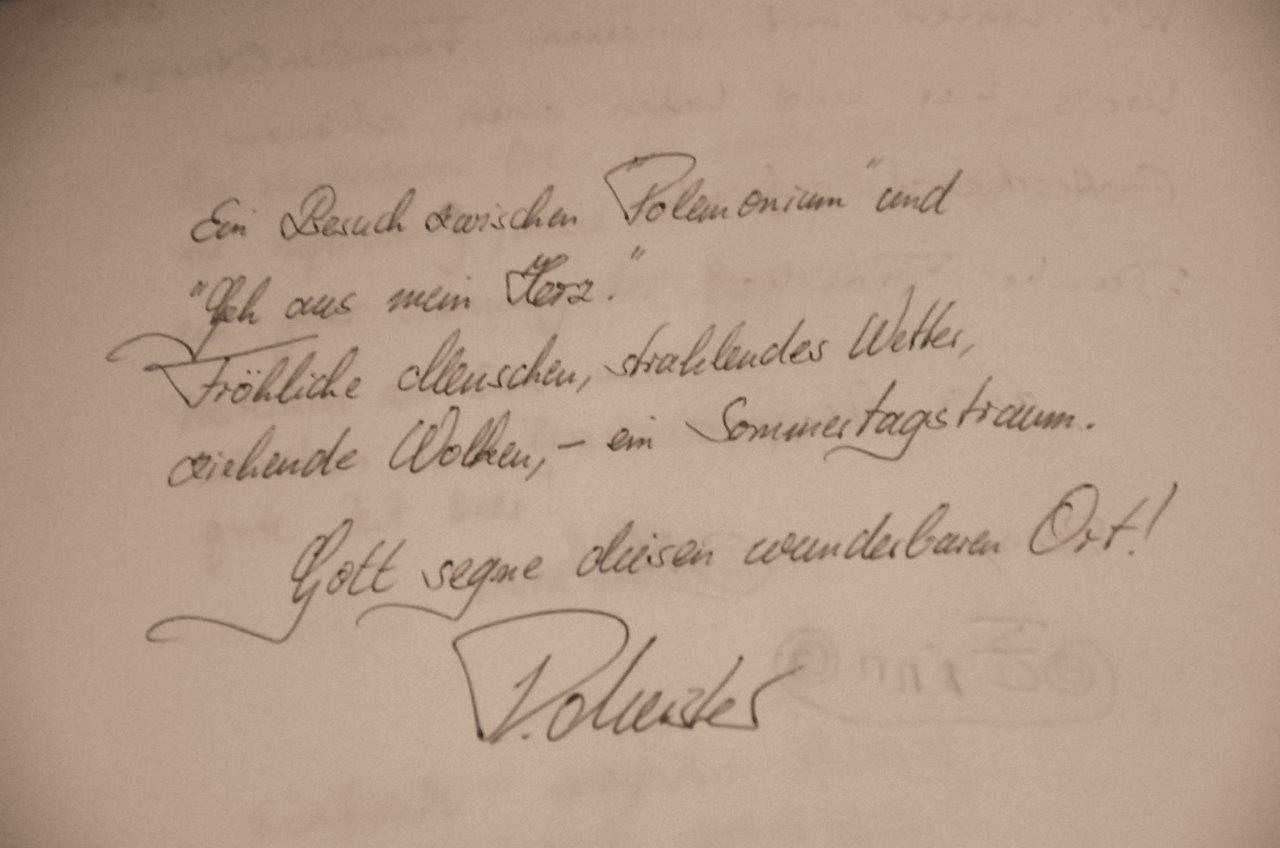 Ein Besuch zwischen "Polemonium" und
"Geh aus mein Herz."
Fröhliche Menschen, strahlendes Wetter,
ziehende Wolken, – ein Sommertagstraum.
Gott segne diesen wunderbaren Ort!